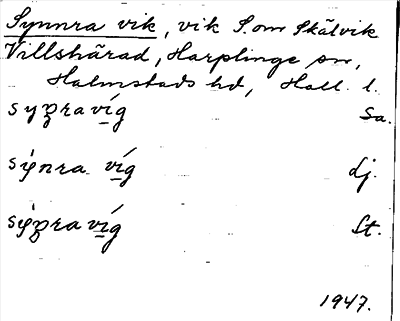 Synnra vik, vik S. om Skälvik
Villshärad, Harplinge sn,
Halmstads hd, Hall. l.
syn̥ra víg Sa.
sẏnra víg Lj.
sẏn̥ra víg St.
1947.